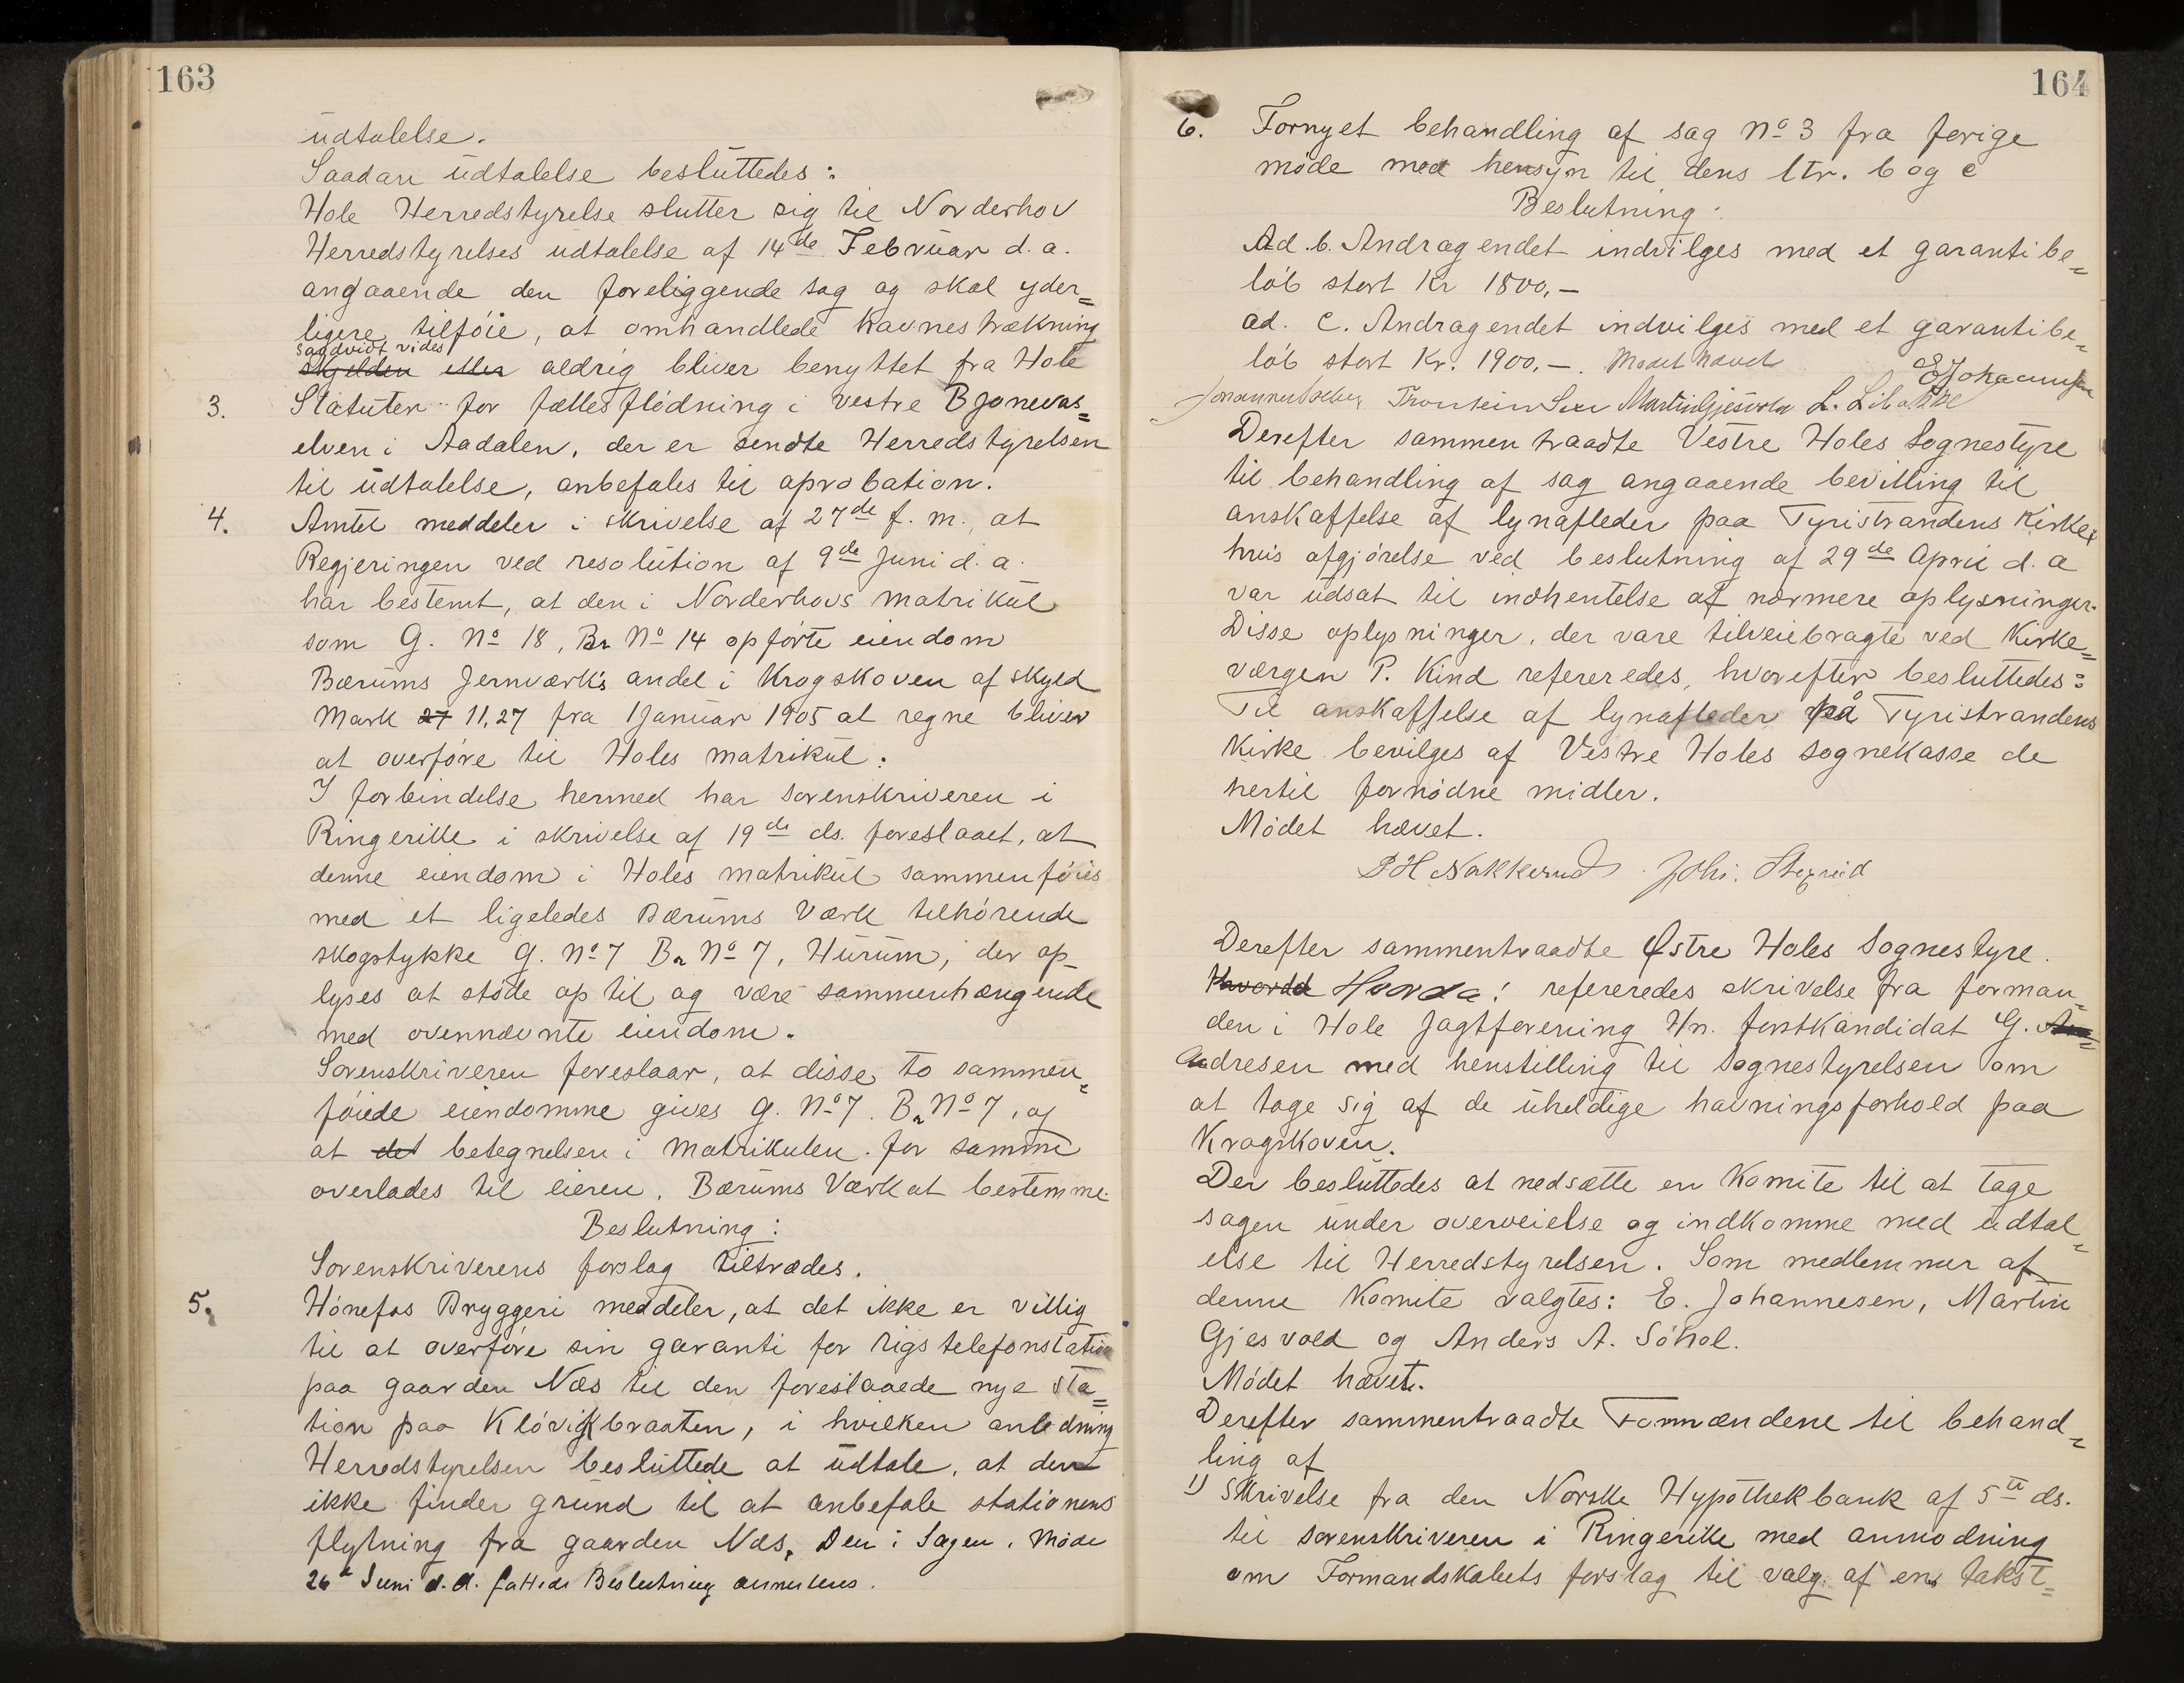 163
udtalelse.
Saadan udtalelse besluttedes:
Hole Herredstyrelse slutter sig til Norderhov
Herredstyrelses udtalelse af 14de Februar d. a.
angaaende den foreliggende sag og skal yder=
ligere tilføie, at omhandlede havnestrækning
saavidt vides
skjelden eller aldrig bliver benyttet fra Hole
3. Statuter for fællesflødning i vestre Bjonevas=
elven i Aadalen, der er sendte Herredstyrelsen
til udtalelse, anbefales til aprobation.
4. Amtet meddeler i skrivelse af 27de f. m., at
Regjeringen ved resolution af 9de Juni d. a.
har bestemt, at den i Norderhovs matrikul
som G. No 18, Br No 14 opførte eiendom
Bærums Jernværk's andel i Krogskoven af skyld
Mark 27 11,27 fra 1 Januar 1905 at regne bliver
at overføre til Holes matrikul.
I forbindelse hermed har sorenskriveren i
Ringerike i skrivelse af 19de ds. foreslaaet, at
denne eiendom i Holes matrikul sammenføies
med et ligeledes Bærums Værk tilhørende
skogstykke G. No 7 Br No 7, Hurum, der op=
lyses at støde op til og være sammenhængende
med ovennævnte eiendom.
Sorenskriveren foreslaar, at disse to sammen=
føiede eiendomme gives G. No 7. Br No 7, og
at det betegnelsen i matrikulen for samme
overlades til eieren, Bærums Værk at bestemme.
Beslutning:
Sorenskriverens forslag tiltrædes.
5. Hønefos Bryggeri meddeler, at det ikke er villig
til at overføre sin garanti for rigstelefonstation
paa gaarden Næs til den foreslaaede nye sta=
tion paa Kløvikbraaten, i hvilken anledning
Herredstyrelsen besluttede at udtale, at den
ikke finder grund til at anbefale stationens
flytning fra gaarden Næs, Den i Sagen i Møde
26de Juni d. a. fattede Beslutning annuleres.
164
6. Fornyet behandling af sag No 3 fra forige
møde med hensyn til dens ltr. b og c
Beslutning:
Ad. b. Andragendet indvilges med et garantibe=
løb stort Kr 1800,—
ad. c. Andragendet indvilges med et garantibe=
løb stort Kr. 1900,—. Mødet hævet
E Johannesen
Martin Gjesvold
Derefter sammentraadte Vestre Holes Sognestyre
til behandling af sag angaaende bevilling til
anskaffelse af lynafleder paa Tyristrandens Kirke,
hvis afgjørelse ved beslutning af 29de April d. a
var udsat til indhentelse af nærmere oplysninger.
Disse oplysninger, der vare tilveiebragte ved Kirke=
værgen P. Kind refereredes, hvorefter besluttedes:
Til anskaffelse af lynafleder på Tyristrandens
Kirke bevilges af Vestre Holes sognekasse de
hertil fornødne midler.
Mødet hævet.
P H Nakkerud
Derefter sammentraadte Østre Holes Sognestyre.
Hvorda Hvorda! refereredes skrivelse fra forman=
den i Hole Jagtforening Hr. forstkandidat G. An=
andresen med henstilling til Sognestyrelsen om
at tage sig af de uheldige havningsforhold paa
Krogskoven.
Der besluttedes at nedsætte en Komite til at tage
sagen under overveielse og indkomme med udtal=
else til Herredstyrelsen. Som medlemmer af
denne Komite valgtes: E. Johannesen, Martin
Gjesvold og Anders A. Søhol.
Mødet hævet.
Derefter sammentraadte Formændene til behand=
ling af
1) Skrivelse fra den Norske Hypothekbank af 5te ds.
til sorenskriveren i Ringerike med anmodning
om Formandskabets forslag til valg af en takst=